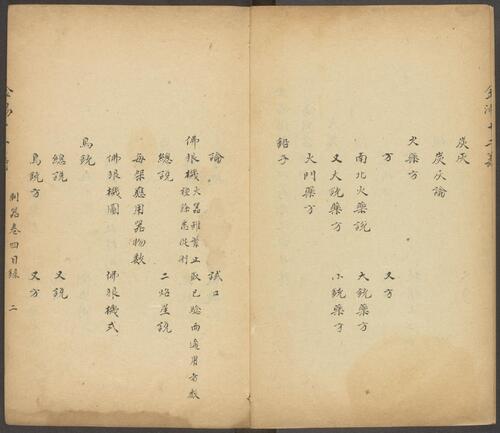 炭灰
炭灰論
火藥方
方 又方
南北火藥説 大銃藥方
又大銃藥方 小銃藥方
火門藥方
鉛子
論 試口
佛狼機火器雖蕃止取已驗而適用者数種餘悉從削
總説 二焰星説
每架應用器物數
佛狼機圖 佛狼機式
鳥銃
總説 又説
鳥銃方 又方
制器卷四目錄 二